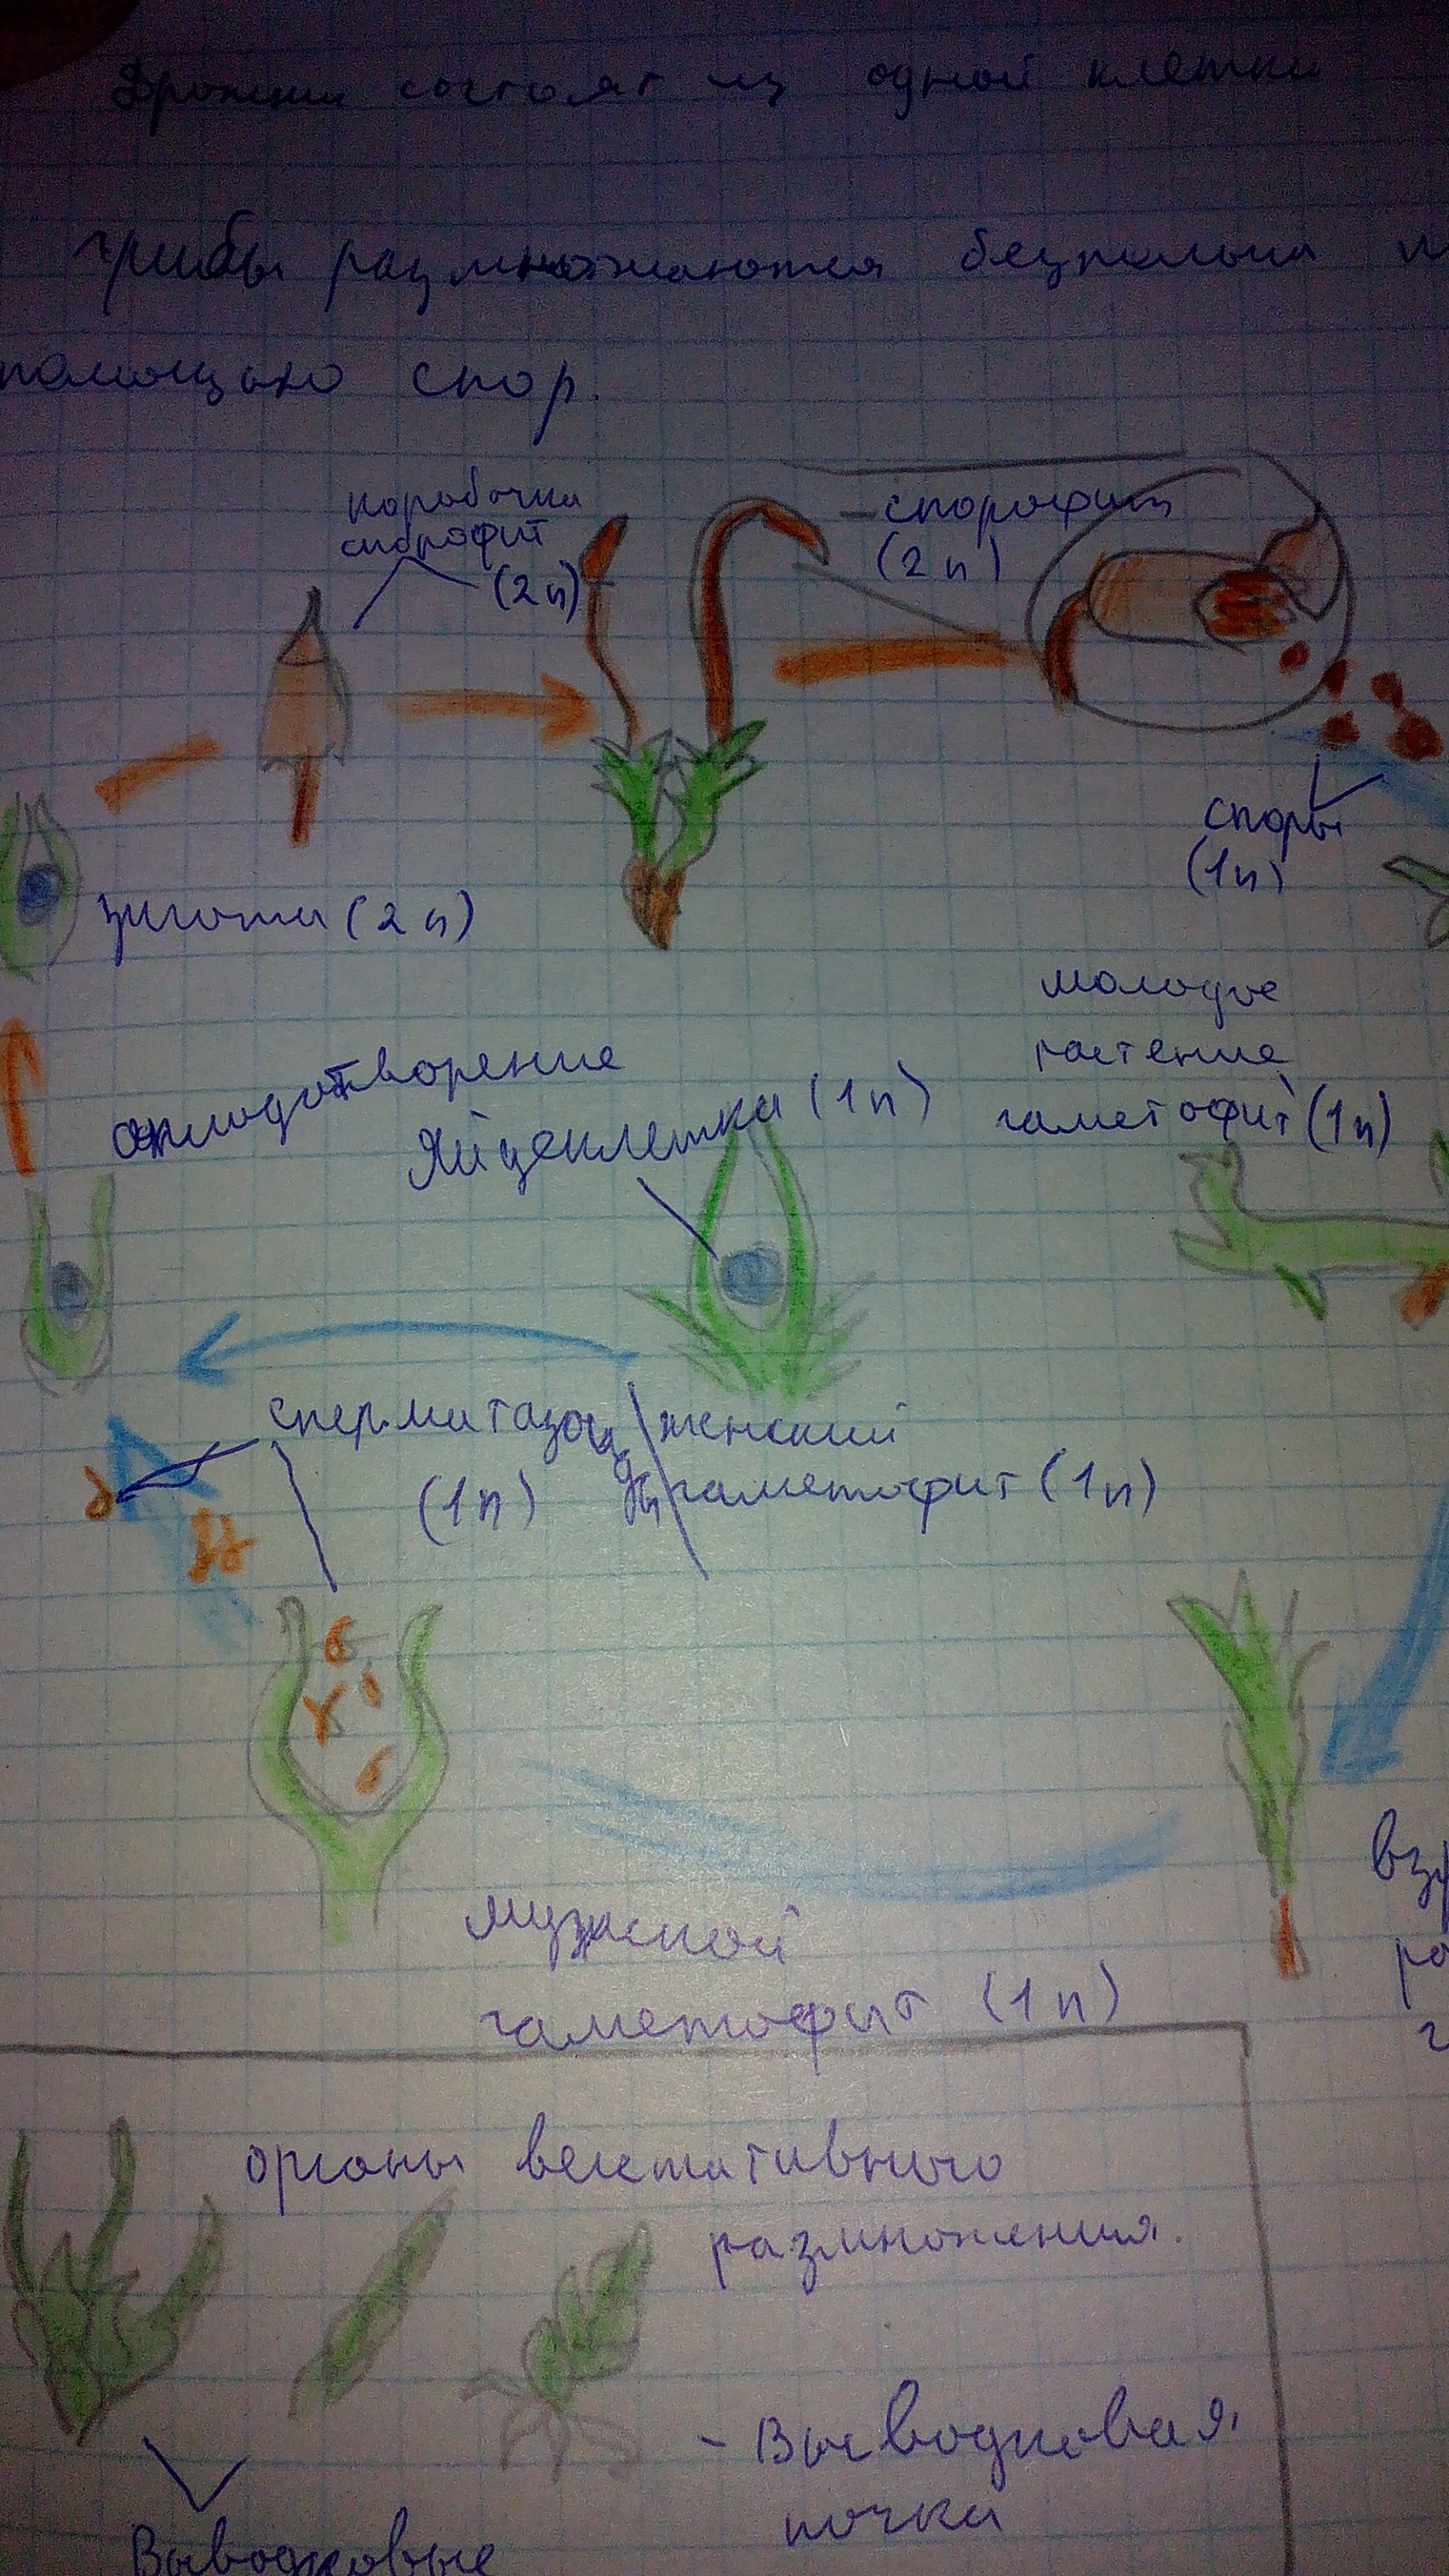 Дрожжи состоят из одной клетки
Грибы размножаются бесполым
помощью спор.
коробочка
спорофит
(2n)
спорофит
(2n)
споры
(1n)
зигота (2n)
молодое
растение
гаметофит (1n)
оплодотворение
Яйцеклетка (1n)
сперматазоиды
(1n)
женский
гаметофит (1n)
взр
ра
г
мужской
гаметофит (1n)
органы вегетативного
размножения.
- Выводковая
почка
Выводковые